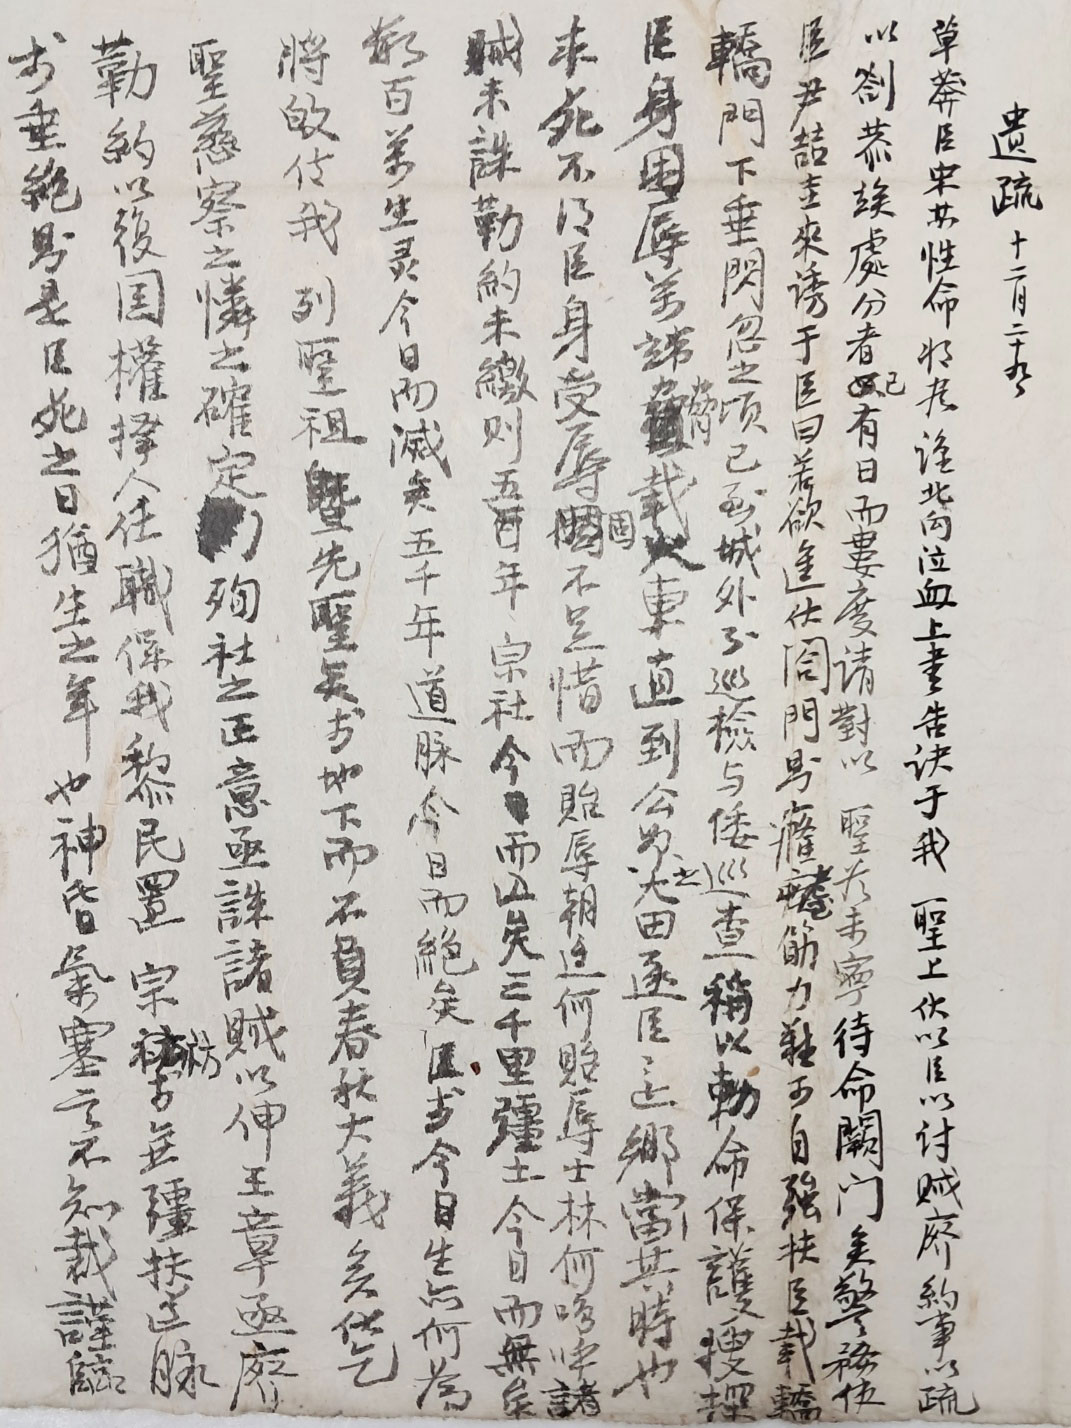 遺疏 十二月二十九
草莽臣宋 性命將 北向泣血上書告訣于我 聖上伏以臣以討賊廢約事以疏
以劄恭竢處分者 已有日而屢度請對以 聖 未寧待命闕門矣警務使
臣尹喆圭來誘于臣曰若欲進伏閤門 癃 筋力難可自强扶臣載轎
轎門下垂閃忽之頃已到城外 巡檢与倭巡查稱以勅命保護搜探
臣身困辱萬端 脅載火車直到公州之太田逐臣還鄉當其時也
未死不得臣身受辱固不足惜而貽辱朝廷何貽辱士林何嗚呼諸
賊未誅勒約未繳則五百年 宗社今 而亡矣三千里疆土今日而無矣
數百萬生灵今日而滅矣五千年道脉今日而絕矣臣於今日生亦何爲
將 我 列聖祖暨先聖矣於地下而不負春秋大義矣伏乞
聖慈察之憐之確定 殉社之正意亟誅諸賊以伸王章亟廢
勒約以復国權擇人任職保我黎民置 宗祊於無疆扶道脉
於垂絕 是臣死之日猶生之年也神昏氣塞言不知裁謹疏